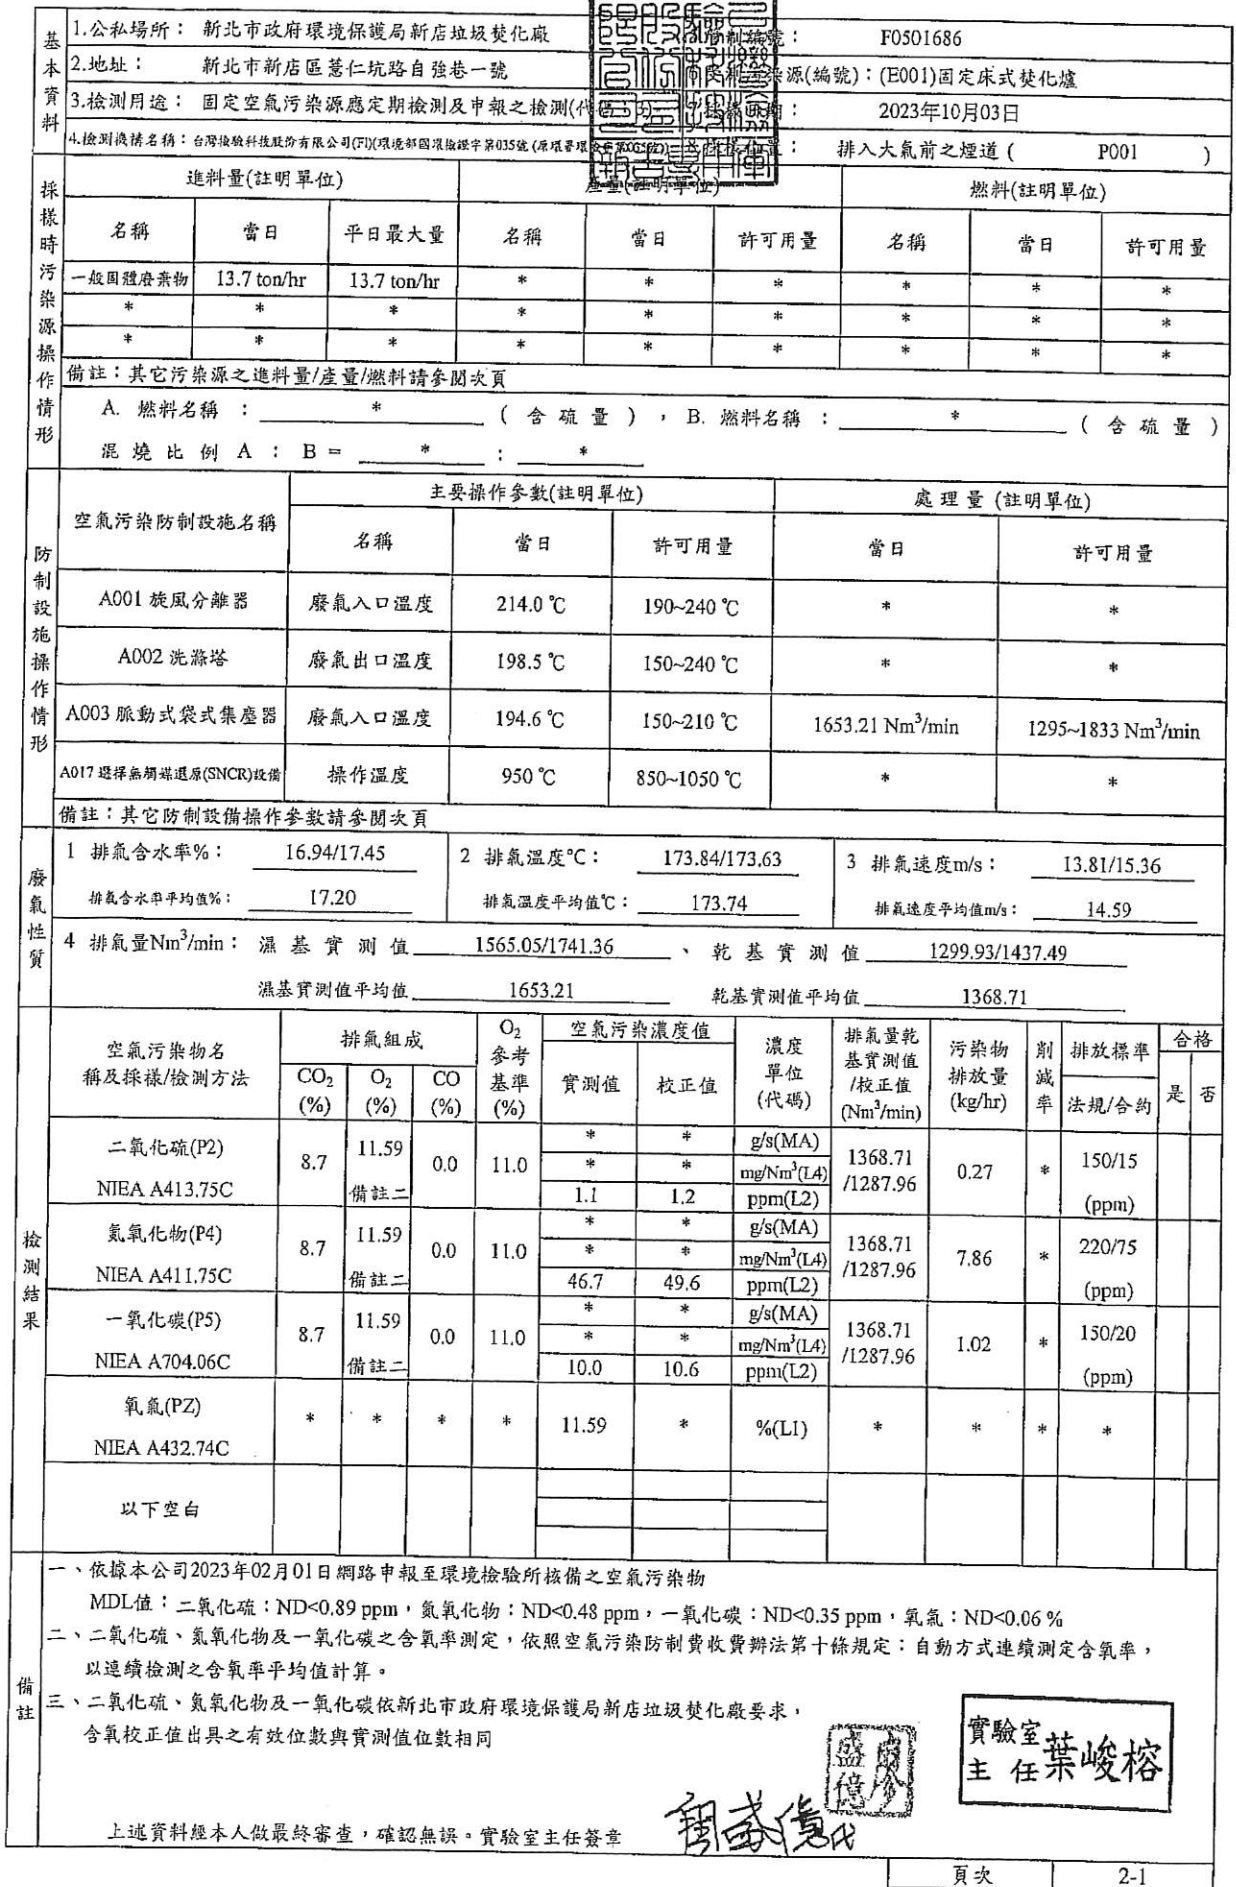 基本資料
1.公私場所： 新北市政府環境保護局新店垃圾焚化廠
F0501686
2.地址： 新北市新店區薏仁坑路自強巷一號
染源(編號)：(E001)固定床式焚化爐
3.檢測用途： 固定空氣污染源應定期檢測及申報之檢測
期： 2023年10月03日
4.檢測機構名稱：台灣檢驗科技股份有限公司(FI)(環境部國環檢證字第035號
位置： 排入大氣前之煙道 ( P001 )
採樣時污染源操作情形
進料量(註明單位) 產量(註明單位) 燃料(註明單位)
名稱 當日 平日最大量 名稱 當日 許可用量 名稱 當日 許可用量
一般固體廢棄物 13.7 ton/hr 13.7 ton/hr * * * * * *
* * * * * * * * *
* * * * * * * * *
備註：其它污染源之進料量/產量/燃料請參閱次頁
A. 燃料名稱 ： * ( 含硫量 ) ， B. 燃料名稱 ： * ( 含硫量 )
混燒比例 A ： B = * : *
防制設施操作情形
空氣污染防制設施名稱 主要操作參數(註明單位) 處理量 (註明單位)
名稱 當日 許可用量 當日 許可用量
A001 旋風分離器 廢氣入口溫度 214.0 ℃ 190~240 ℃ * *
A002 洗滌塔 廢氣出口溫度 198.5 ℃ 150~240 ℃ * *
A003 脈動式袋式集塵器 廢氣入口溫度 194.6 ℃ 150~210 ℃ 1653.21 Nm³/min 1295~1833 Nm³/min
A017 選擇無觸媒還原(SNCR)設備 操作溫度 950 ℃ 850~1050 ℃ * *
備註：其它防制設備操作參數請參閱次頁
廢氣性質
1 排氣含水率%： 16.94/17.45 2 排氣溫度℃： 173.84/173.63 3 排氣速度m/s： 13.81/15.36
排氣含水率平均值%： 17.20 排氣溫度平均值℃： 173.74 排氣速度平均值m/s： 14.59
4 排氣量Nm³/min： 濕基實測值 1565.05/1741.36 、 乾基實測值 1299.93/1437.49
濕基實測值平均值 1653.21 乾基實測值平均值 1368.71
檢測結果
空氣污染物名稱及採樣/檢測方法 排氣組成 O₂參考基準(%) 空氣污染濃度值 濃度單位(代碼) 排氣量乾基實測值/校正值(Nm³/min) 污染物排放量(kg/hr) 削減率 排放標準 合格
CO₂(%) O₂(%) CO(%) 實測值 校正值 法規/合約 是 否
二氧化硫(P2) * * g/s(MA)
8.7 11.59 0.0 11.0 * * mg/Nm³(L4) 1368.71/1287.96 0.27 * 150/15
NIEA A413.75C 備註二 1.1 1.2 ppm(L2) (ppm)
氮氧化物(P4) * * g/s(MA)
8.7 11.59 0.0 11.0 * * mg/Nm³(L4) 1368.71/1287.96 7.86 * 220/75
NIEA A411.75C 備註二 46.7 49.6 ppm(L2) (ppm)
一氧化碳(P5) * * g/s(MA)
8.7 11.59 0.0 11.0 * * mg/Nm³(L4) 1368.71/1287.96 1.02 * 150/20
NIEA A704.06C 備註二 10.0 10.6 ppm(L2) (ppm)
氧氣(PZ)
* * * * 11.59 * %(L1) * * * *
NIEA A432.74C
以下空白
備註
一、依據本公司2023年02月01日網路申報至環境檢驗所核備之空氣污染物
MDL值：二氧化硫：ND<0.89 ppm，氮氧化物：ND<0.48 ppm，一氧化碳：ND<0.35 ppm，氧氣：ND<0.06 %
二、二氧化硫、氮氧化物及一氧化碳之含氧率測定，依照空氣污染防制費收費辦法第十條規定：自動方式連續測定含氧率，
以連續檢測之含氧率平均值計算。
三、二氧化硫、氮氧化物及一氧化碳依新北市政府環境保護局新店垃圾焚化廠要求，
含氧校正值出具之有效位數與實測值位數相同
實驗室主任 葉峻榕
上述資料經本人做最終審查，確認無誤。實驗室主任簽章
頁次 2-1